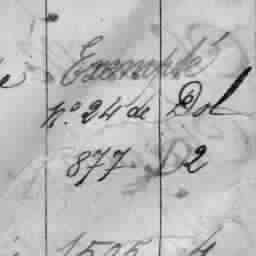 Exemplé
nº 24 de Dol
877 D2
1505 4